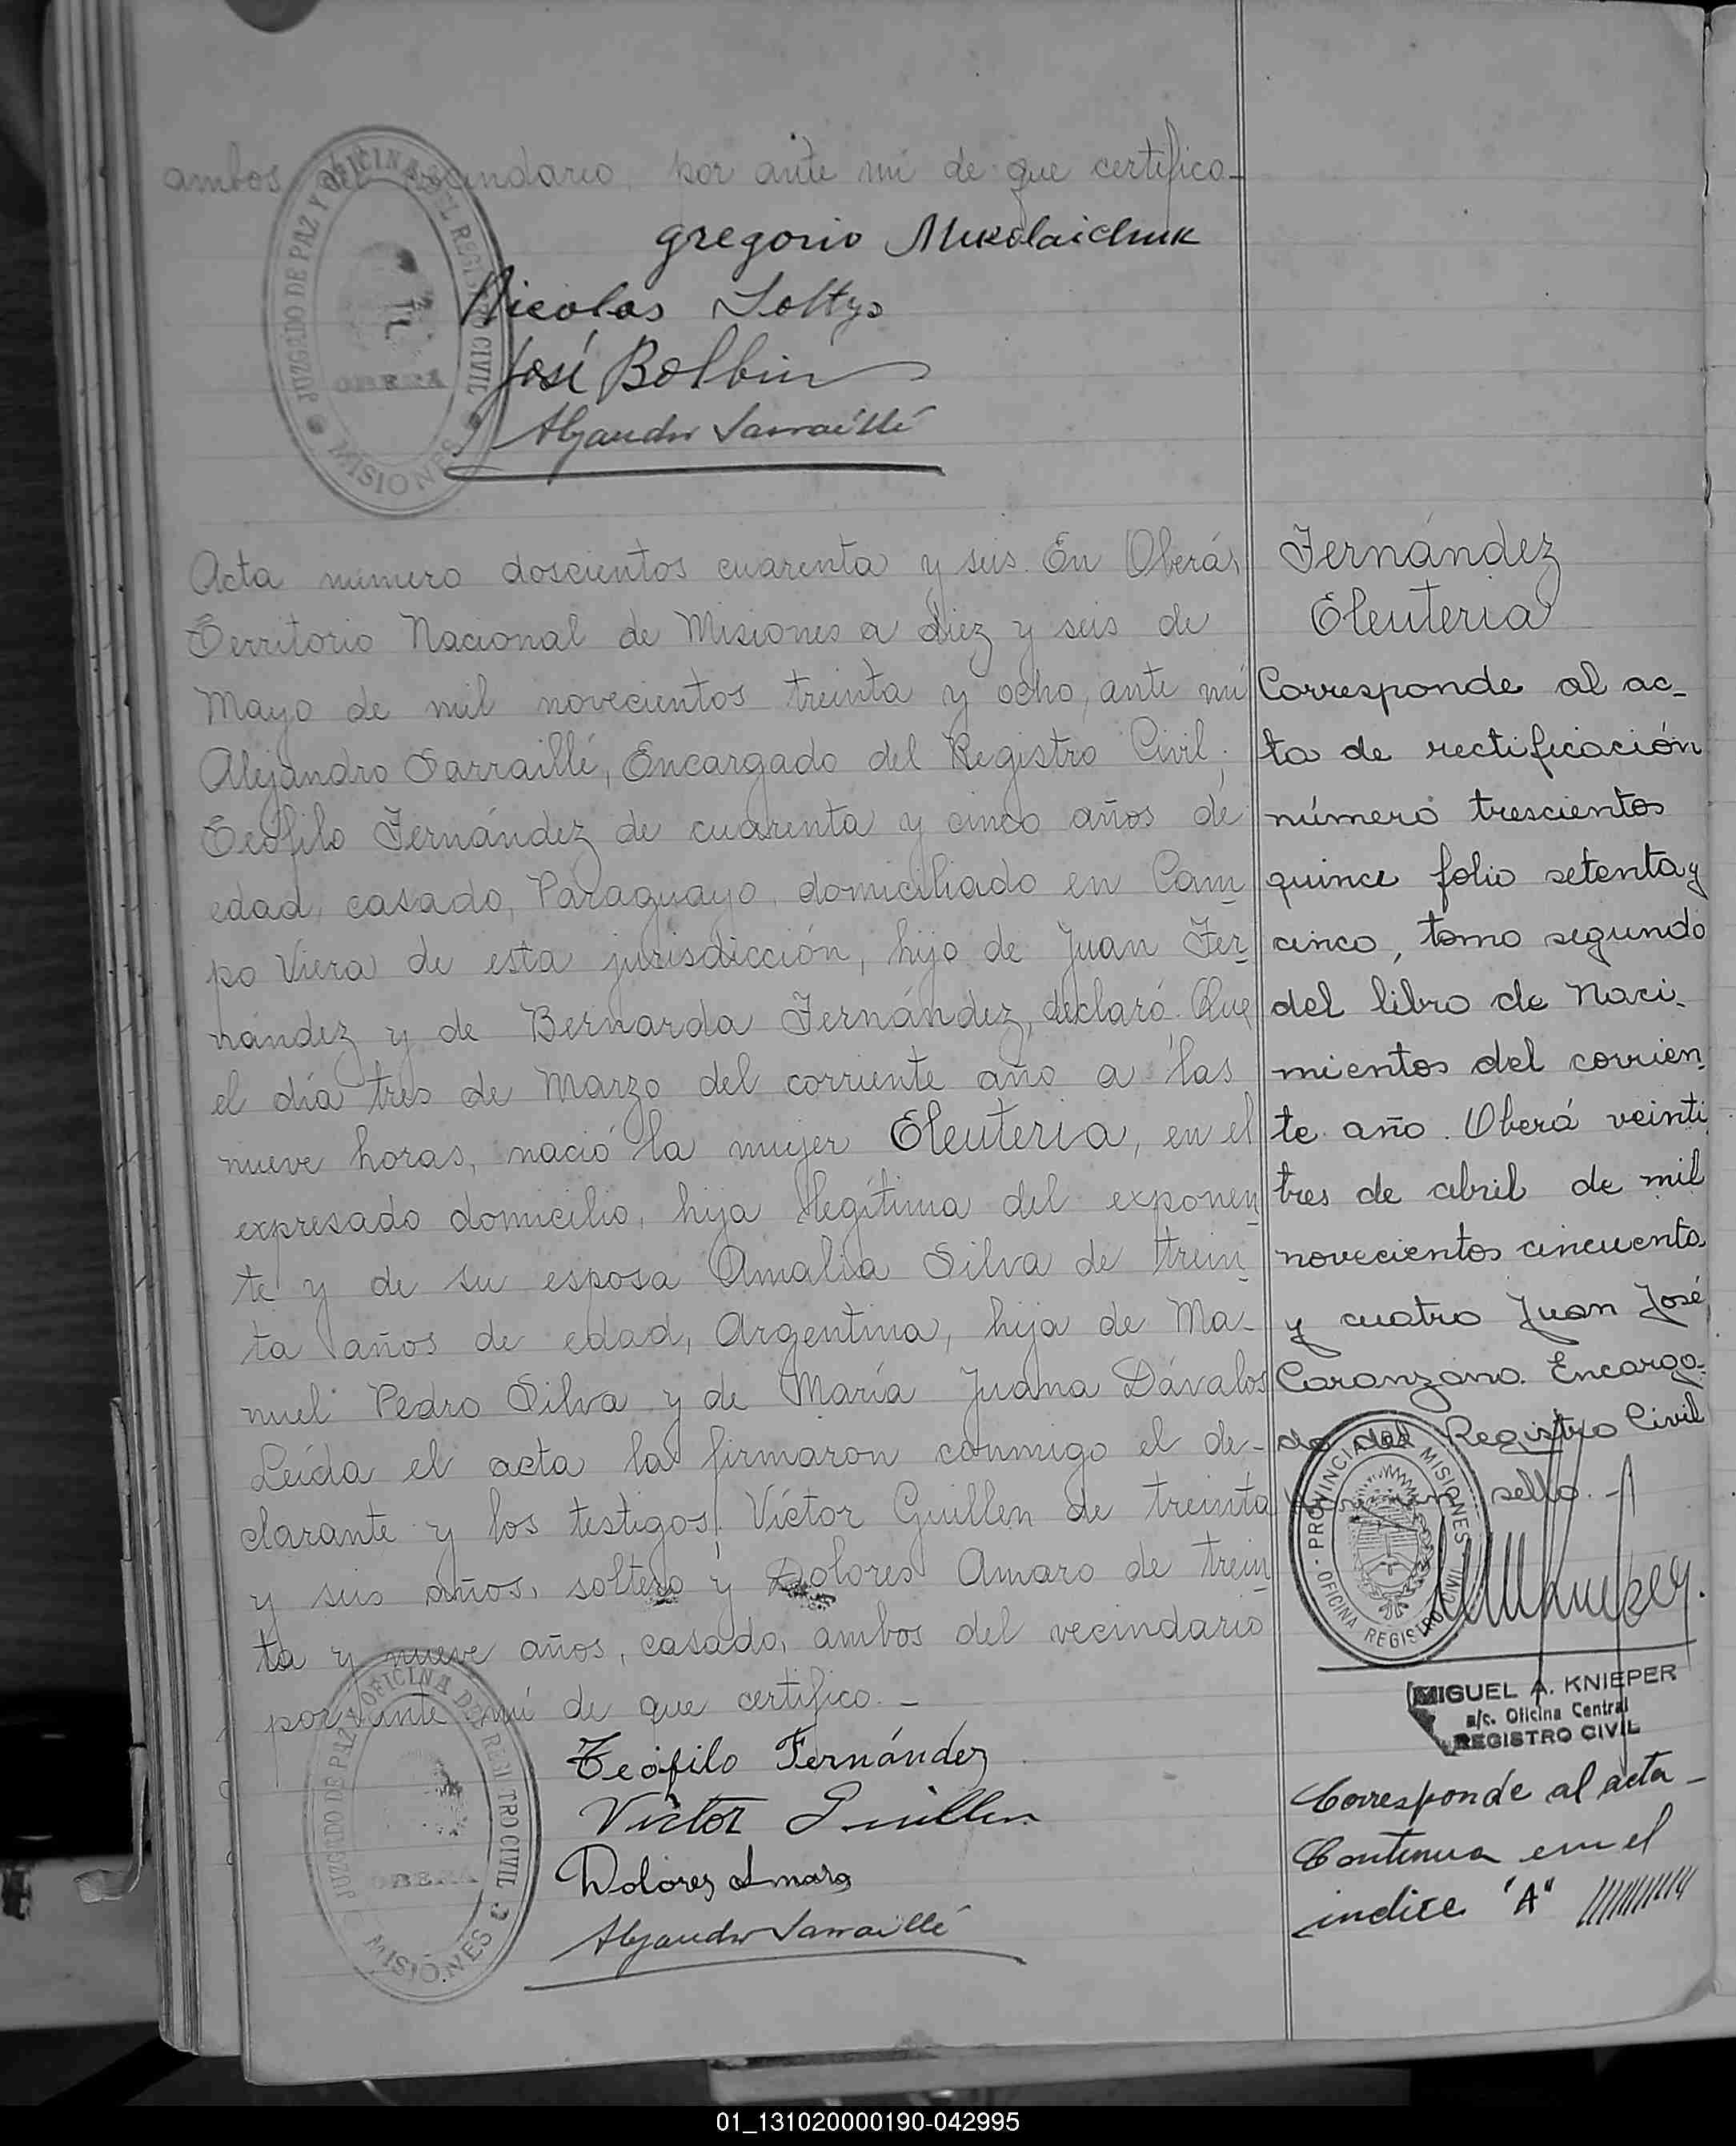 ambos del vecindario, por ante mi de que certifico_
JUZGADO DE PAZ Y OFICINA DEL REGISTRO CIVIL
OBERA
MISIONES
gregorio Mikolaichuk
Nicolas Soltys
José Bolbin
Alejandro Sarraillé
Acta número doscientos cuarenta y seis. En Oberá,
Territorio Nacional de Misiones a diez y seis de
Mayo de mil novecientos treinta y ocho, ante mí
Alejandro Sarraillé, Encargado del Registro Civil;
Teófilo Fernández de cuarenta y cinco años de
edad, casado, Paraguayo, domiciliado en Cam_
po Viera de esta jurisdicción, hijo de Juan Fer_
nández y de Bernarda Fernández, declaró. Que
el día tres de Marzo del corriente año a las
nueve horas, nació la mujer Eleuteria, en el
expresado domicilio, hija legítima del exponen_
te y de su esposa Amalia Silva de trein_
ta años de edad, Argentina, hija de Ma_
nuel Pedro Silva y de María Juana Dávalos
Leída el acta la firmaron conmigo el de_
clarante y los testigos, Víctor Guillen de treinta
y seis años, soltero y Dolores Amaro de trein_
ta y nueve años, casado, ambos del vecindario
por ante mí de que certifico. _
JUZGADO DE PAZ Y OFICINA DEL REGISTRO CIVIL
OBERA
MISIONES
Teófilo Fernández
Victor Guillen
Dolores Amaro
Alejandro Sarraillé
Fernández
Eleuteria
Corresponde al ac_
ta de rectificación
número trescientos
quince folio setenta y
cinco, tomo segundo
del libro de Naci_
mientos del corrien_
te año. Oberá veinti
tres de abril de mil
novecientos cincuenta
y cuatro Juan José
Caranzano. Encarga_
do del Registro Civil
sello. _
PROVINCIA DE MISIONES
OFICINA REGISTRO CIVIL
MIGUEL A. KNIEPER
a/c. Oficina Central
REGISTRO CIVIL
Corresponde al acta _
Continua en el
indice "A"
01_131020000190-042995